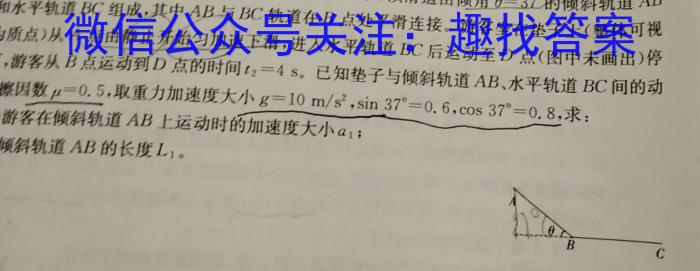 和水平轨道BC组成,其中AB与BC轨道在B点处 滑连接
微信公众号关注：趣找答案
质点)从
BC后运动至D点(图中未画出)停
,游客从B点运动到D点的时间t₂=4 s。已知垫子与倾斜轨道AB、水平轨道BC间的动
擦因数μ=0.5,取重力加速度大小g=10 m/s²,sin 37°=0.6,cos 37°=0.8,求:
游客在倾斜轨道AB上运动时的加速度大小a₁;
倾斜轨道AB的长度L₁。
A
θ
B
C